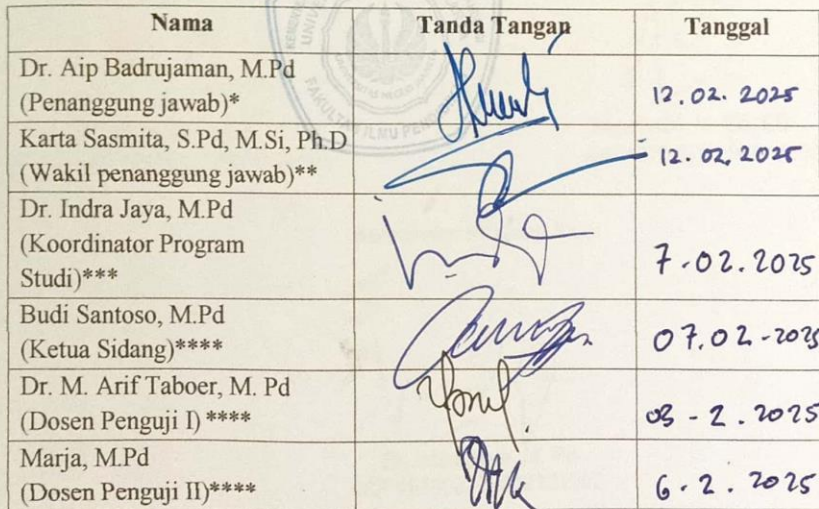 Nama Tanda Tangan Tanggal
Dr. Aip Badrujaman, M.Pd
(Penanggung jawab)* 12.02.2025
Karta Sasmita, S.Pd, M.Si, Ph.D
(Wakil penanggung jawab)** 12.02.2025
Dr. Indra Jaya, M.Pd
(Koordinator Program
Studi)*** 7.02.2025
Budi Santoso, M.Pd
(Ketua Sidang)**** 07.02-2025
Dr. M. Arif Taboer, M. Pd
(Dosen Penguji I) **** 03 - 2 . 2025
Marja, M.Pd
(Dosen Penguji II)**** 6 . 2 . 2025
FAKULTAS ILMU